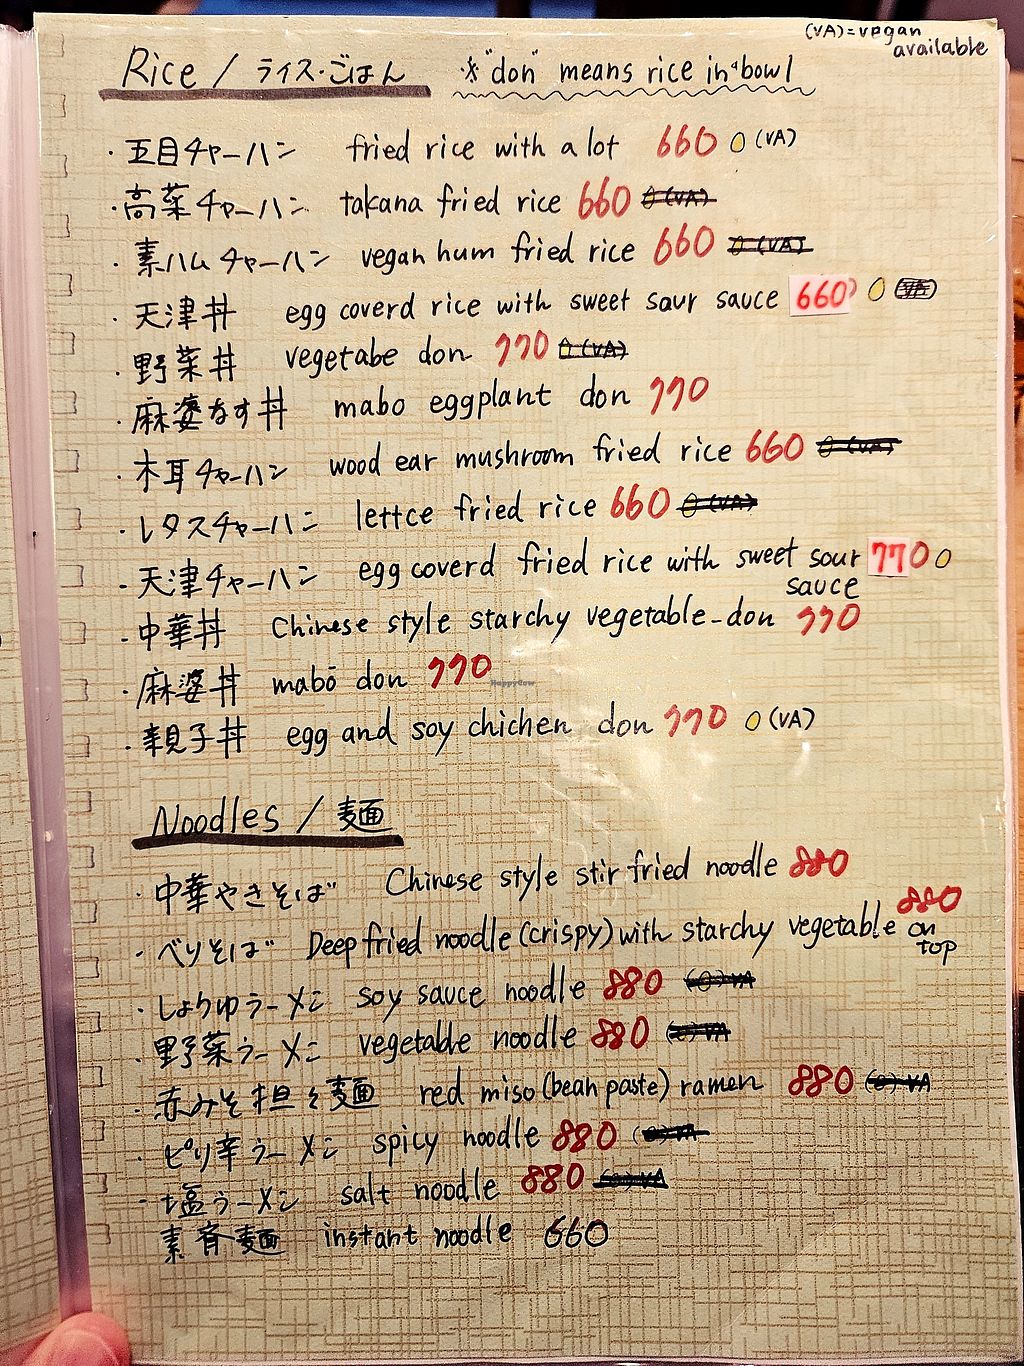 (VA)=vegan
available
Rice / ライス・ごはん ※"don" means rice in a bowl
・五目チャーハン fried rice with a lot 660 0 (VA)
・高菜チャーハン takana fried rice 660 0 (VA)
・素ハムチャーハン vegan hum fried rice 660 0 (VA)
・天津丼 egg coverd rice with sweet saur sauce 660 0
・野菜丼 vegetabe don 770 0 (VA)
・麻婆なす丼 mabo eggplant don 770
・木耳チャーハン wood ear mushroom fried rice 660 0 (VA)
・レタスチャーハン lettce fried rice 660 0 (VA)
・天津チャーハン egg coverd fried rice with sweet sour 770 0
sauce
・中華丼 Chinese style starchy vegetable-don 770
・麻婆丼 mabō don 770
HappyCow
・親子丼 egg and soy chichen don 770 0 (VA)
Noodles / 麺
・中華やきそば Chinese style stir fried noodle 880
・ぺりそば Deep fried noodle (crispy) with starchy vegetable on 880
top
・しょうゆラーメン soy sauce noodle 880 VA
・野菜ラーメン vegetable noodle 880 VA
・赤みそ担々麺 red miso (bean paste) ramen 880 VA
・ピリ辛ラーメン spicy noodle 880 VA
・塩ラーメン salt noodle 880 VA
素斉麺 instant noodle 660